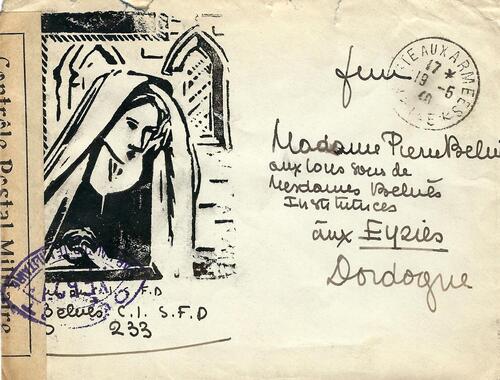 Contrôle Postal Militaire
AUX ARMÉES
17 *
19 - 6
40
Madame Pierre Belvès
aux bons soins de
Mesdames Belvès
Institutrices
aux Eyzies
Dordogne
S.F.D
Belvès C.I. S.F.D
233